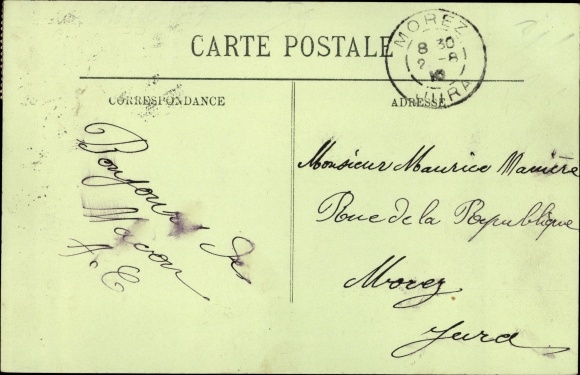 CARTE POSTALE
MOREZ
8 30
2 - 8
10
JURA
CORRESPONDANCE
ADRESSE
Bonjour de
Macon
A. C
Monsieur Maurice Manière
Rue de la République
Morez
Jura